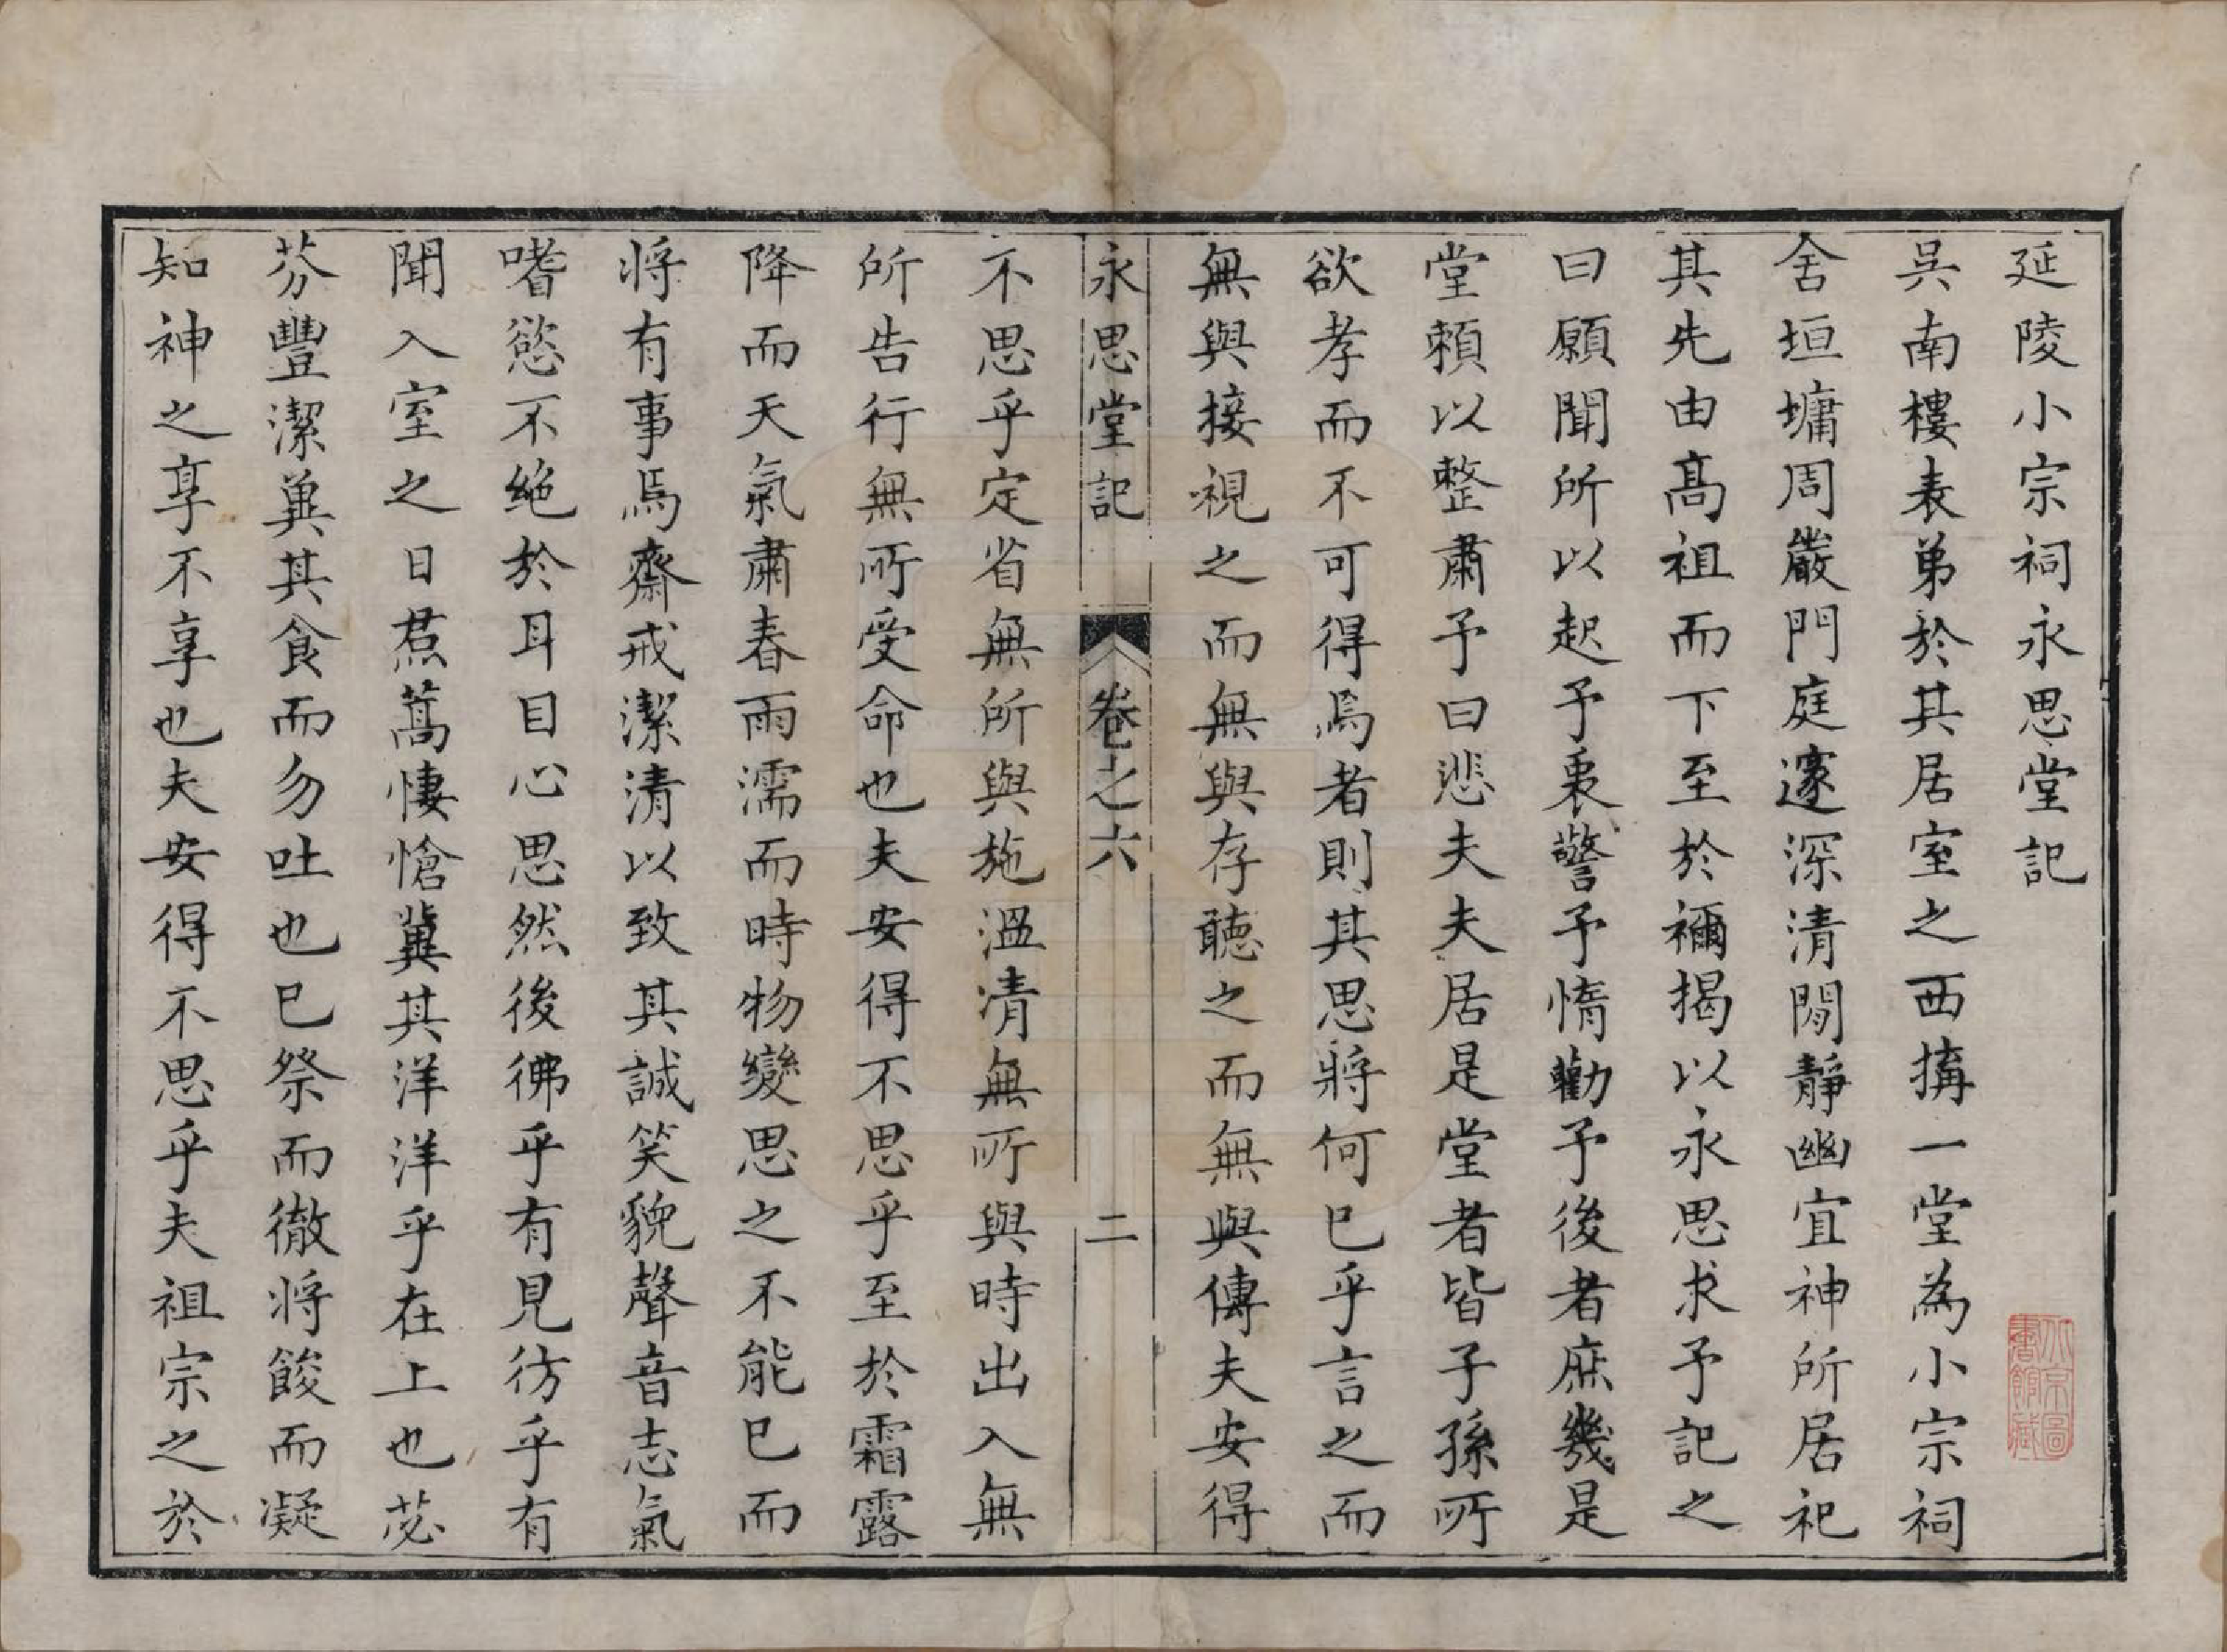 延陵小宗祠永思堂記
吳南樓表弟於其居室之西搆一堂為小宗祠
舍垣墉周嚴門庭邃深清閒靜幽宜神所居祀
其先由高祖而下至於禰揭以永思求予記之
曰願聞所以起予衷警予惰勸予後者庶幾是
堂賴以整肅予曰悲夫夫居是堂者皆子孫所
欲孝而不可得焉者則其思將何已乎言之而
無與接視之而無與存聽之而無與傳夫安得
永思堂記 卷之六 二
不思乎定省無所與施溫清無所與時出入無
所告行無所受命也夫安得不思乎至於霜露
降而天氣肅春雨濡而時物變思之不能已而
將有事焉齋戒潔清以致其誠笑貌聲音志氣
嗜慾不絕於耳目心思然後彿乎有見彷乎有
聞入室之日焄蒿悽愴冀其洋洋乎在上也苾
芬豐潔冀其食而勿吐也已祭而徹將餕而凝
知神之享不享也夫安得不思乎夫祖宗之於